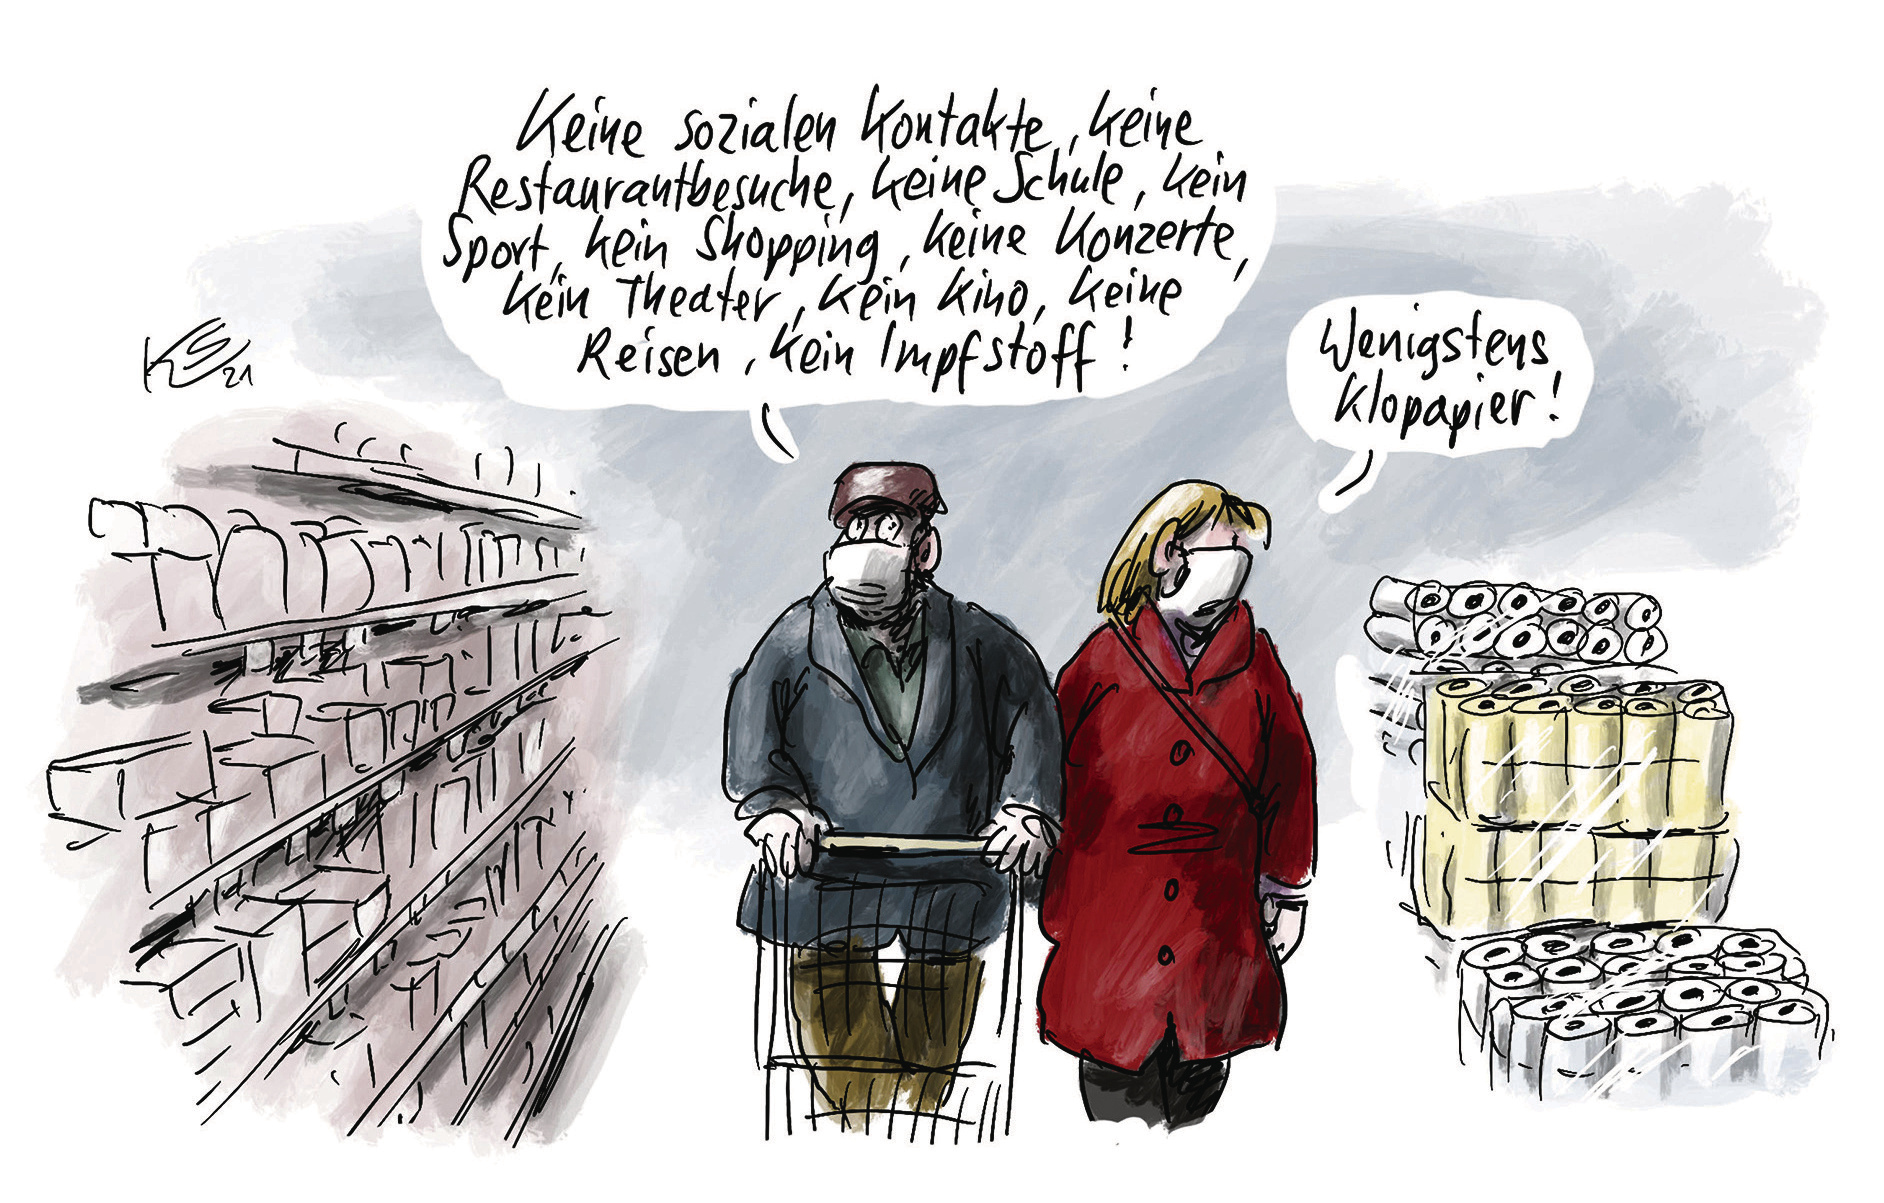 Keine sozialen Kontakte, keine
Restaurantbesuche, keine Schule, kein
Sport, kein Shopping, keine Konzerte,
kein Theater, kein Kino, keine
Reisen, kein Impfstoff!
Wenigstens
Klopapier!
KS
21